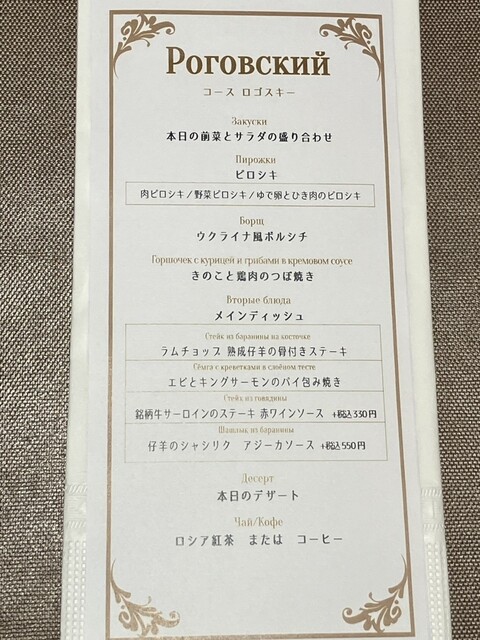 Роговский
コース ロゴスキー
Закуски
本日の前菜とサラダの盛り合わせ
Пирожки
ピロシキ
肉ピロシキ/野菜ピロシキ/ゆで卵とひき肉のピロシキ
Борщ
ウクライナ風ボルシチ
Горшочек с курицей и грибами в кремовом соусе
きのこと鶏肉のつぼ焼き
Вторые блюда
メインディッシュ
Стейк из баранины на косточке
ラムチョップ 熟成仔羊の骨付きステーキ
Сёмга с креветками в слоёном тесте
エビとキングサーモンのパイ包み焼き
Стейк из говядины
銘柄牛サーロインのステーキ 赤ワインソース +税込330円
Шашлык из баранины
仔羊のシャシリク アジーカソース +税込550円
Десерт
本日のデザート
Чай/Кофе
ロシア紅茶 または コーヒー